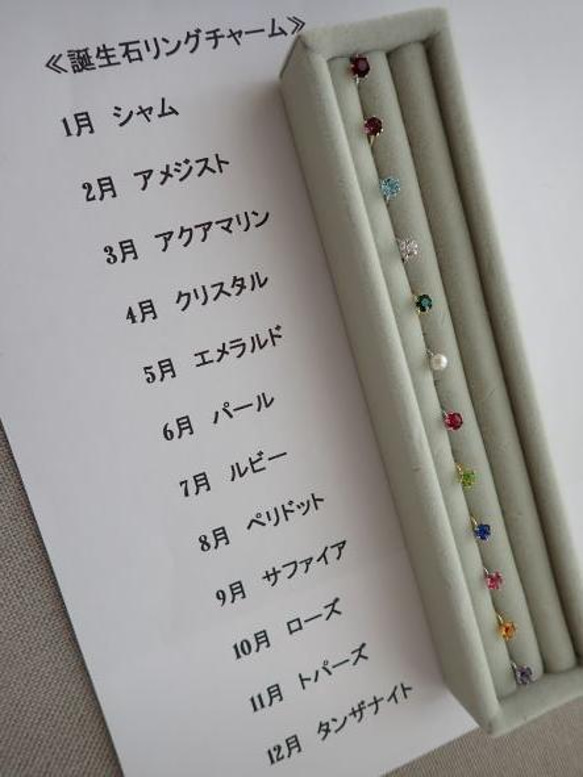 ≪誕生石リングチャーム≫
1月 シャム
2月 アメジスト
3月 アクアマリン
4月 クリスタル
5月 エメラルド
6月 パール
7月 ルビー
8月 ペリドット
9月 サファイア
10月 ローズ
11月 トパーズ
12月 タンザナイト